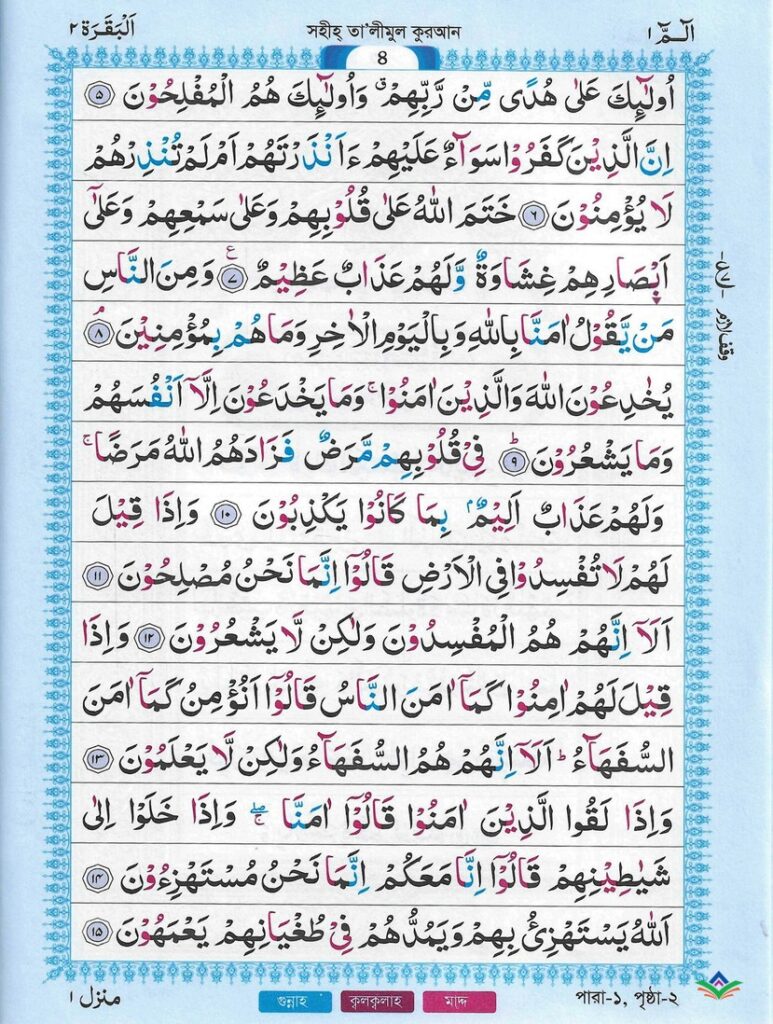 الٓمّٓ ١ সহীহ্ তা'লীমুল কুরআন اَلْبَقَرَة ٢
8
اُولٰٓئِكَ عَلٰى هُدًى مِّنْ رَّبِّهِمْ ۙ وَاُولٰٓئِكَ هُمُ الْمُفْلِحُوْنَ ۵
اِنَّ الَّذِيْنَ كَفَرُوْا سَوَآءٌ عَلَيْهِمْ ءَاَنْذَرْتَهُمْ اَمْ لَمْ تُنْذِرْهُمْ
لَا يُؤْمِنُوْنَ ۶ خَتَمَ اللهُ عَلٰى قُلُوْبِهِمْ وَعَلٰى سَمْعِهِمْ وَعَلٰٓى
اَبْصَارِهِمْ غِشَاوَةٌ وَّلَهُمْ عَذَابٌ عَظِيْمٌ ۷ ع وَمِنَ النَّاسِ
مَنْ يَّقُوْلُ اٰمَنَّا بِاللهِ وَبِالْيَوْمِ الْاٰخِرِ وَمَا هُمْ بِمُؤْمِنِيْنَ ۘ ۸
وقف لازم
يُخٰدِعُوْنَ اللهَ وَالَّذِيْنَ اٰمَنُوْا ۚ وَمَا يَخْدَعُوْنَ اِلَّآ اَنْفُسَهُمْ
وَمَا يَشْعُرُوْنَ ؕ ۹ فِيْ قُلُوْبِهِمْ مَّرَضٌ فَزَادَهُمُ اللهُ مَرَضًا ۚ
وَلَهُمْ عَذَابٌ اَلِيْمٌۢ بِمَا كَانُوْا يَكْذِبُوْنَ ۱۰ وَاِذَا قِيْلَ
لَهُمْ لَا تُفْسِدُوْا فِى الْاَرْضِ قَالُوْٓا اِنَّمَا نَحْنُ مُصْلِحُوْنَ ۱۱
اَلَآ اِنَّهُمْ هُمُ الْمُفْسِدُوْنَ وَلٰكِنْ لَّا يَشْعُرُوْنَ ۱۲ وَاِذَا
قِيْلَ لَهُمْ اٰمِنُوْا كَمَآ اٰمَنَ النَّاسُ قَالُوْٓا اَنُؤْمِنُ كَمَآ اٰمَنَ
السُّفَهَآءُ ؕ اَلَآ اِنَّهُمْ هُمُ السُّفَهَآءُ وَلٰكِنْ لَّا يَعْلَمُوْنَ ۱۳
وَاِذَا لَقُوا الَّذِيْنَ اٰمَنُوْا قَالُوْٓا اٰمَنَّا ۖۚ وَاِذَا خَلَوْا اِلٰى
شَيٰطِيْنِهِمْ قَالُوْٓا اِنَّا مَعَكُمْ اِنَّمَا نَحْنُ مُسْتَهْزِءُوْنَ ۱۴
اَللهُ يَسْتَهْزِئُ بِهِمْ وَيَمُدُّهُمْ فِيْ طُغْيَانِهِمْ يَعْمَهُوْنَ ۱۵
منزل ١ গুন্নাহ ক্বলক্বলাহ মাদ্দ পারা-১, পৃষ্ঠা-২